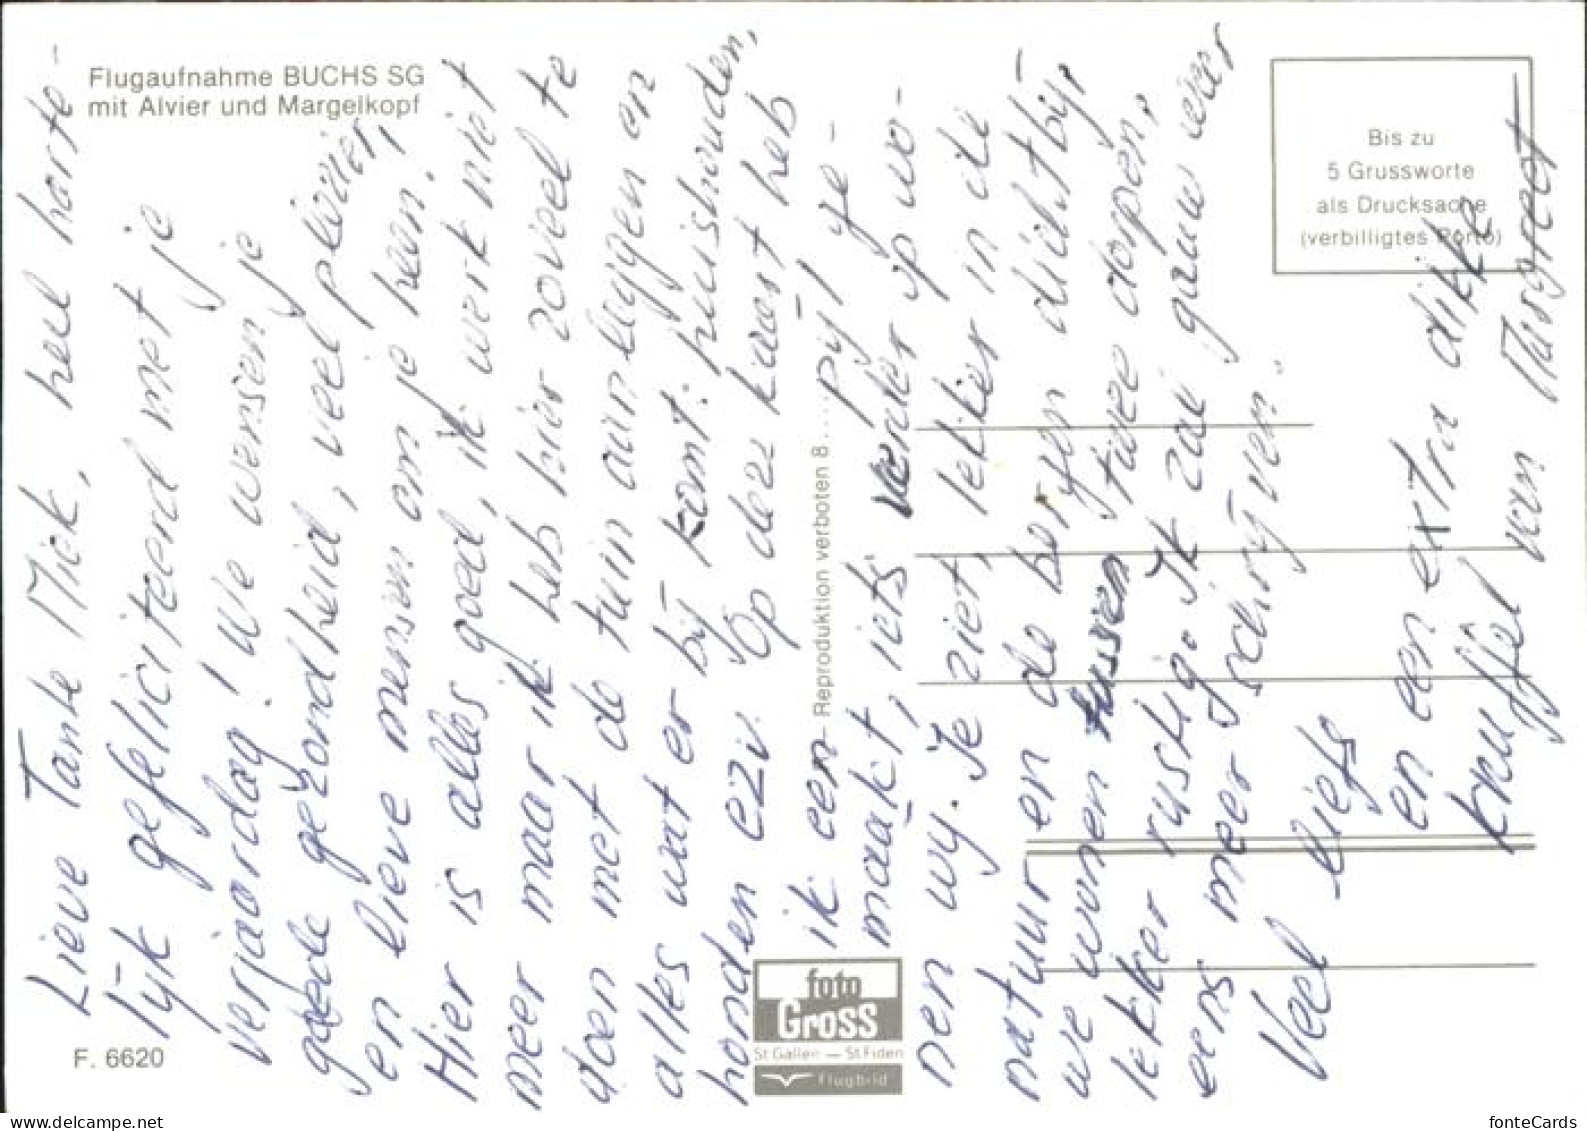 Flugaufnahme BUCHS SG
mit Alvier und Margelkopf
Bis zu
5 Grussworte
als Drucksache
(verbilligtes Porto)
Lieve Tante Miek, heel harte-
lijk gefeliciteerd met je
verjaardag! We wensen je
goede gezondheid, veel plezier,
en lieve mensen om je heen!
Hier is alles goed, ik werk niet
meer maar ik heb hier zoveel te
doen met de tuin aanleggen en
alles wat er bij komt: huishouden,
honden ezv. Op deze kaart heb
ik een pijl ge-
maakt, iets verder op wo-
nen wij. Je ziet, lekker in de
natuur en de bergen dichtbij,
we wonen tussen twee dorpen,
lekker rustig. Ik zal gauw weer
eens meer schrijven.
Veel liefs
en een extra dikke
knuffel van Margreet
Reproduktion verboten 8....
F. 6620
foto
Gross
St. Gallen — St. Fiden
Flugbild
www.delcampe.net
fonteCards